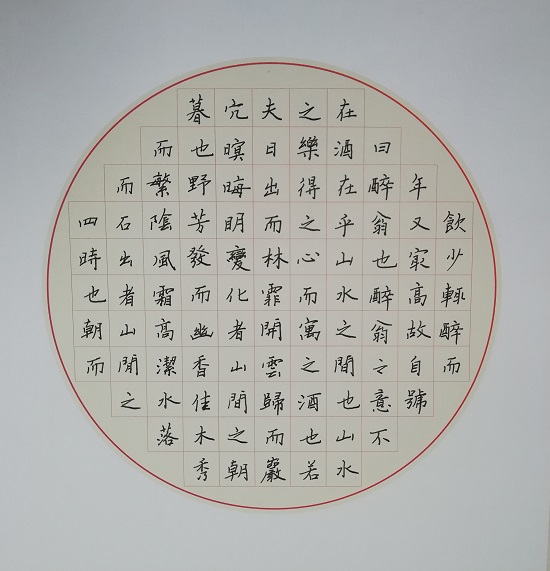 飲少輒醉而
年又冣高故自號
曰醉翁也醉翁之意不
在酒在乎山水之間也山水
之樂得之心而寓之酒也若
夫日出而林霏開雲歸而巖
穴暝晦明變化者山間之朝
暮也野芳發而幽香佳木秀
而繁陰風霜高潔水落
而石出者山間之
四時也朝而